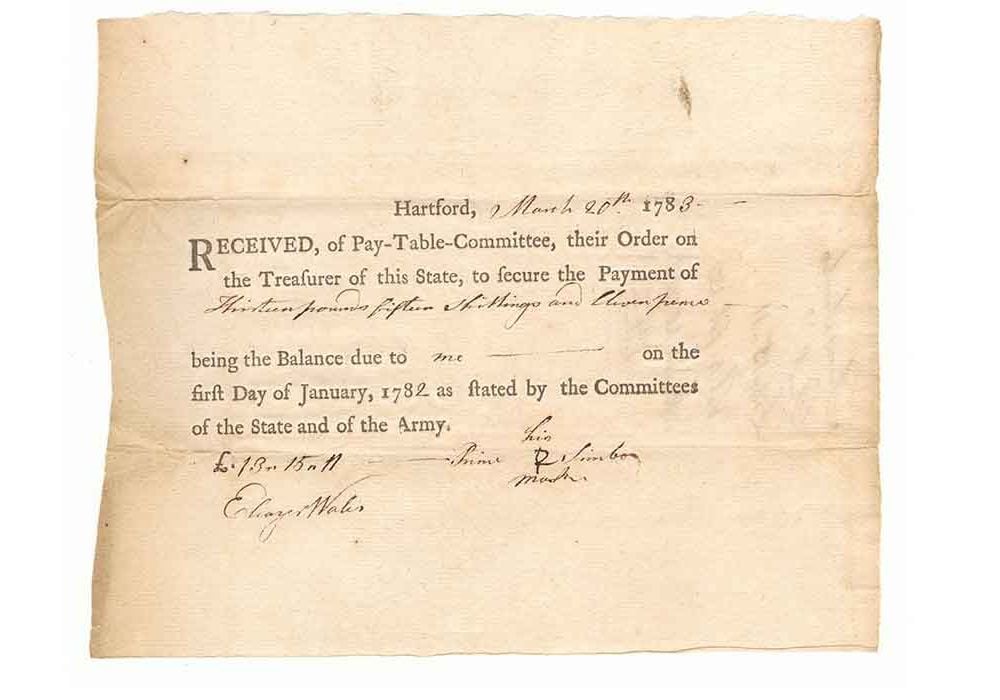 Hartford, March 20th. 1783-
RECEIVED, of Pay-Table-Committee, their Order on
the Treaſurer of this State, to ſecure the Payment of
Thirteen pounds fifteen Shillings and Eleven pence
being the Balance due to me on the
firſt Day of January, 1782 as ſtated by the Committees
of the State and of the Army.
his
£.13"15"11 Prime P Simbo
mark
Eleazer Wales